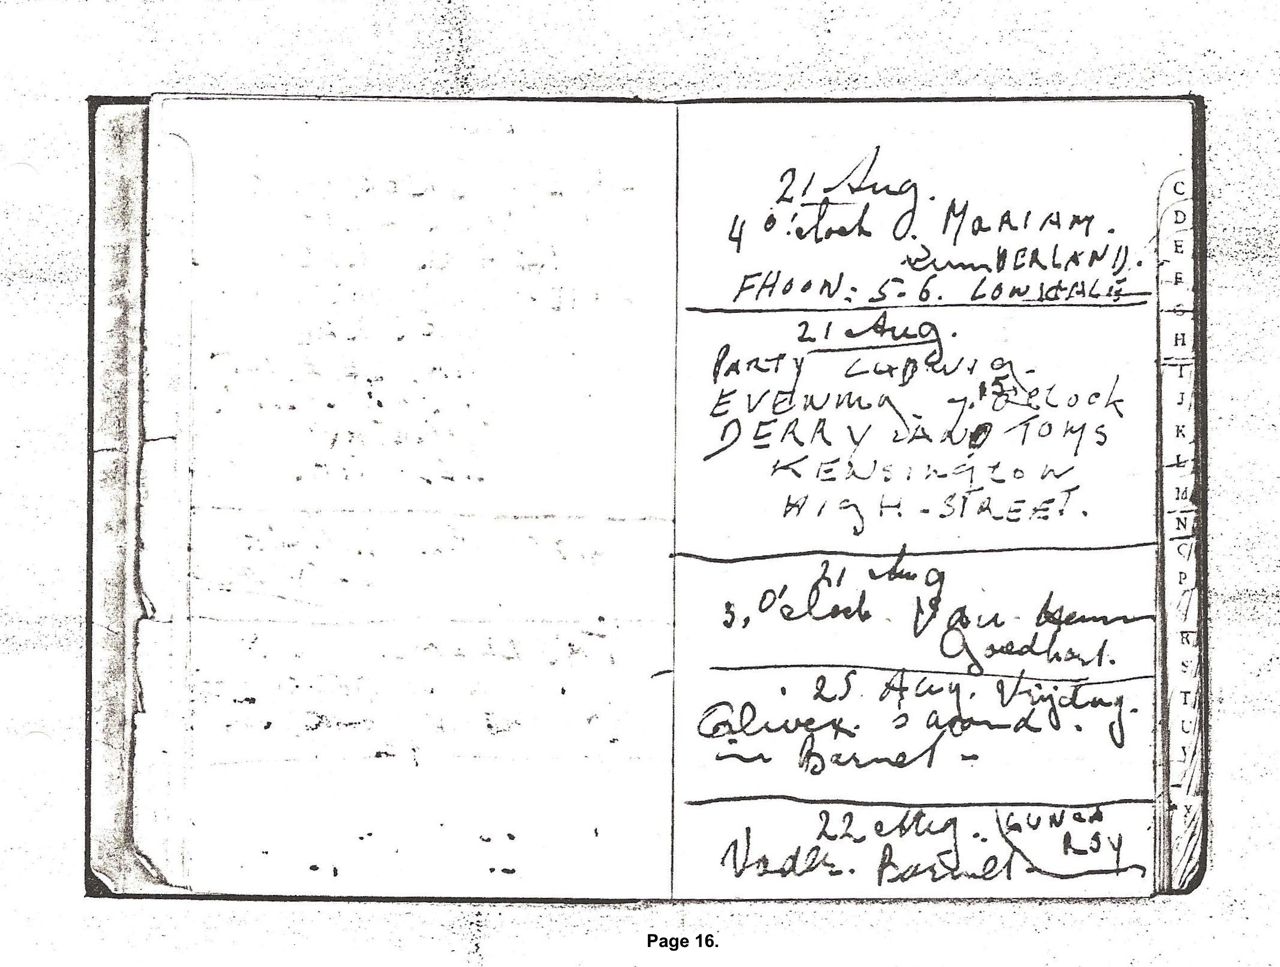 21 Aug.
4 o'clock. MARIAM.
CumBERLAND.
FHOON: 5-6.
21 Aug.
PARTY LUDWIG.
EVENING 7.15 O'CLOCK
DERRY AND TOMS
KENSINGTON
HIGH-STREET.
21 Aug
3, O'clock Van
Goedhart.
25 Aug. Vrijdag.
Oliver. 's avond.
in Barnet -
22 Aug. LUNCH
Barnet ROY
C
D
E
F
G
H
I
J
K
L
M
N
P
R
S
T
U
X
Page 16.